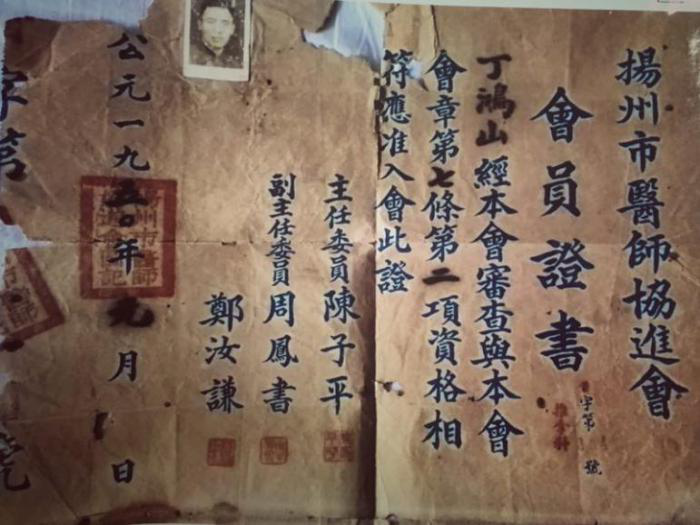 揚州市醫師協進會
會員證書
字第 號
丁鴻山經本會審查與本會
會章第七條第二項資格相
符應准入會此證
主任委員陳子平
副主任委員周鳳書
鄭汝謙
公元一九五〇年元月 日
字第
號